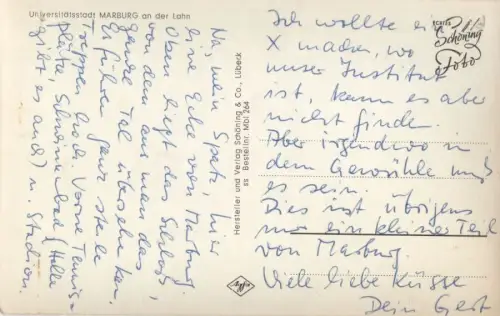 Universitätsstadt MARBURG an der Lahn
Na, mein Spatz, hier
eine Ecke von Marburg.
Oben liegt das Schloß,
von dem aus man das
ganze Tal übersehen kann.
Es führen ganz steile
Treppen hoch. Vorne Tennis-
plätze, Schwimmbad (Halle
gibt es auch) u. Stadion.
Hersteller und Verlag Schöning & Co., Lübeck
ss Bestellnr. Mbl 264
Agfa
ECHTES
Schöning
Foto
Ich wollte ein
X machen, wo
unser Institut
ist, kann es aber
nicht finden.
Aber irgendwo in
dem Gewühle muß
es sein.
Dies ist übrigens
nur ein kleiner Teil
von Marburg.
Viele liebe Küsse
Dein Gert